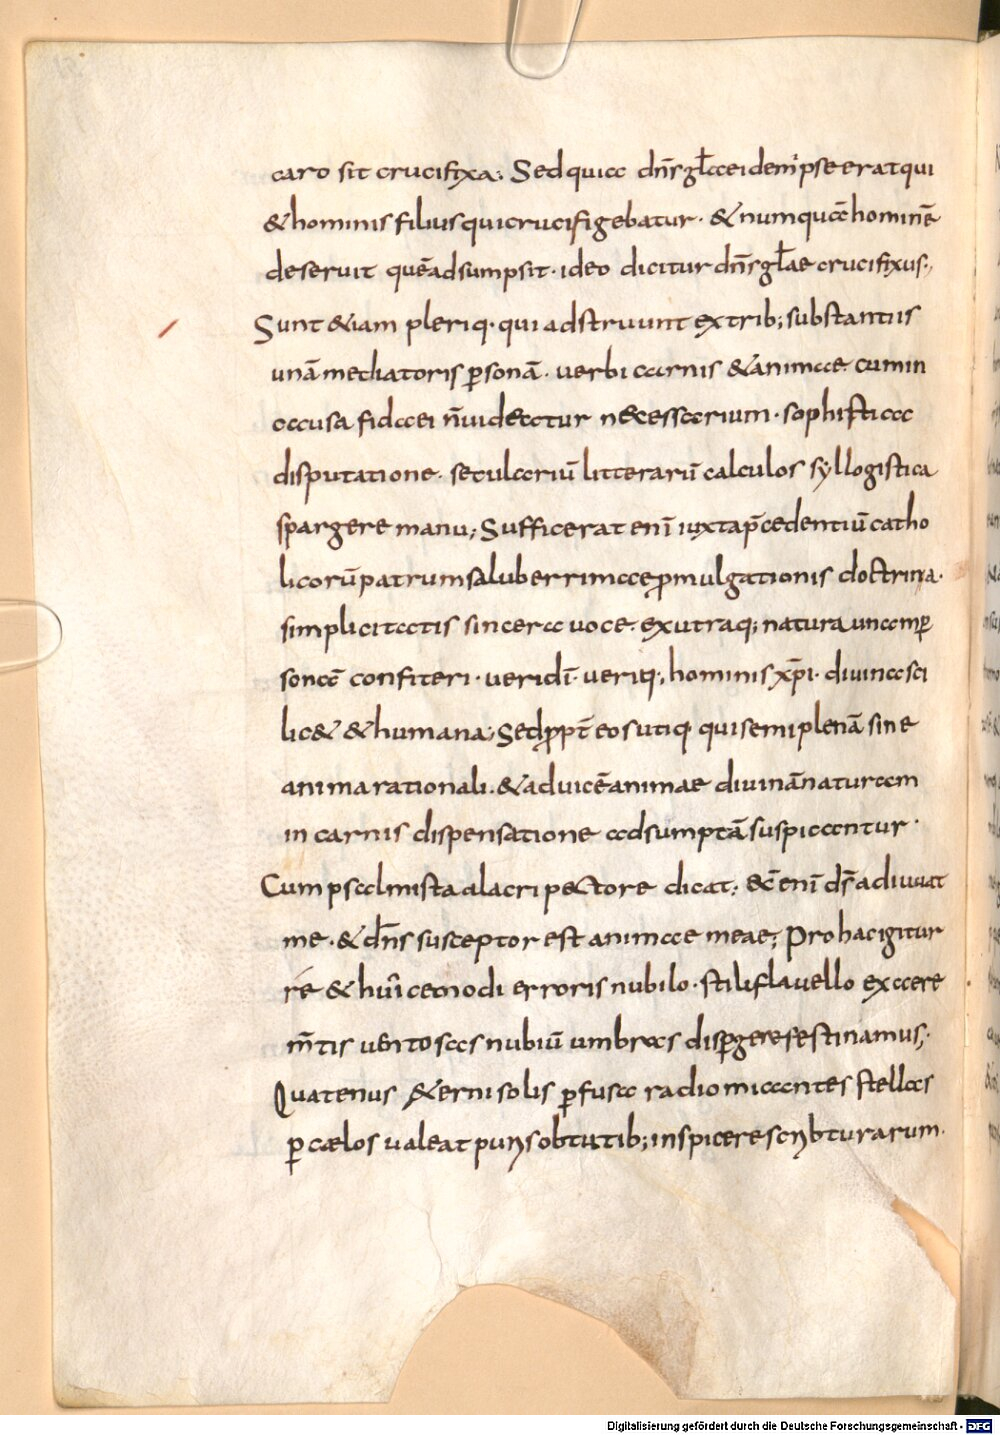 caro sit crucifixa; Sed quia dn̄s gl̄ae idem ipse erat qui
& hominis filius qui crucifigebatur · & numquā hominē
deseruit quē adsumpsit · ideo dicitur dn̄s gl̄ae crucifixus;
Sunt &iam pleriq· qui adstruunt ex trib; substantiis
unā mediatoris p̱sonā · verbi carnis & animae cum in
accusa fidaei n̄ videatur necessarium · sophistica
disputatione · se tulariū litterarū calculos syllogistica
spargere manu; Sufficerat enī iuxta p̄cedentiū catho
licorū patrum saluberrimae p̱mulgationis doctrina ·
simplicitatis sincera voce · ex utraq; natura unam p̱
sonā confiteri · veri dī · veriq; hominis xp̄i · divina sci
lic& & humana; Sed p̱pt̄ eos utiq· qui semiplenā sine
anima rationali · & ad vicē animae divinā naturam
in carnis dispensatione adsumptā suspicantur ·
Cum psalmista alacri pectore dicat; &c̄ enī ds̄ adiuvat
me · & dn̄s susceptor est animae meae; Pro hac igitur
rē & huīcemodi erroris nubilo · stili flavello exaere
m̄tis ventosas nubiū umbras disp̱gere festinamus;
Quatenus &erni solis p̱fusa radio micantes stellas
p̱ cælos valeat puris obtutib; inspicere scripturarum ·
Digitalisierung gefördert durch die Deutsche Forschungsgemeinschaft - DFG